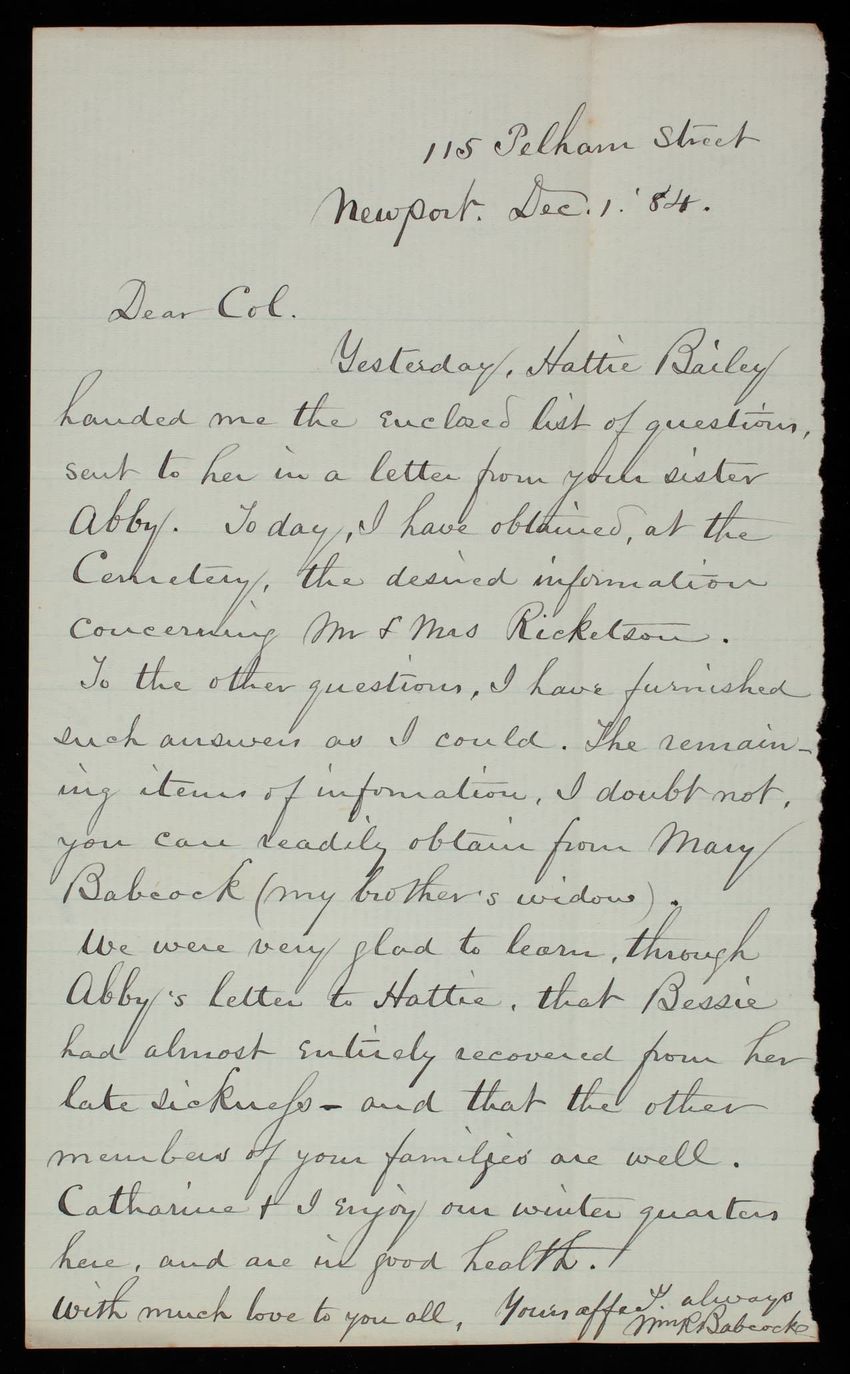 115 Pelham Street
Newport. Dec. 1. '84.
Dear Col.
Yesterday, Hattie Bailey
handed me the enclosed list of questions,
sent to her in a letter from your sister
Abby. Today, I have obtained, at the
Cemetery, the desired information
concerning Mr & Mrs Ricketson.
To the other questions, I have furnished
such answers as I could. The remain-
ing items of information, I doubt not,
you can readily obtain from Mary
Babcock (my brother's widow).
We were very glad to learn, through
Abby's letter to Hattie, that Bessie
had almost entirely recovered from her
late sickness - and that the other
members of your families are well.
Catharine & I enjoy our winter quarters
here, and are in good health.
With much love to you all, Yours affecly always
Wm R Babcock